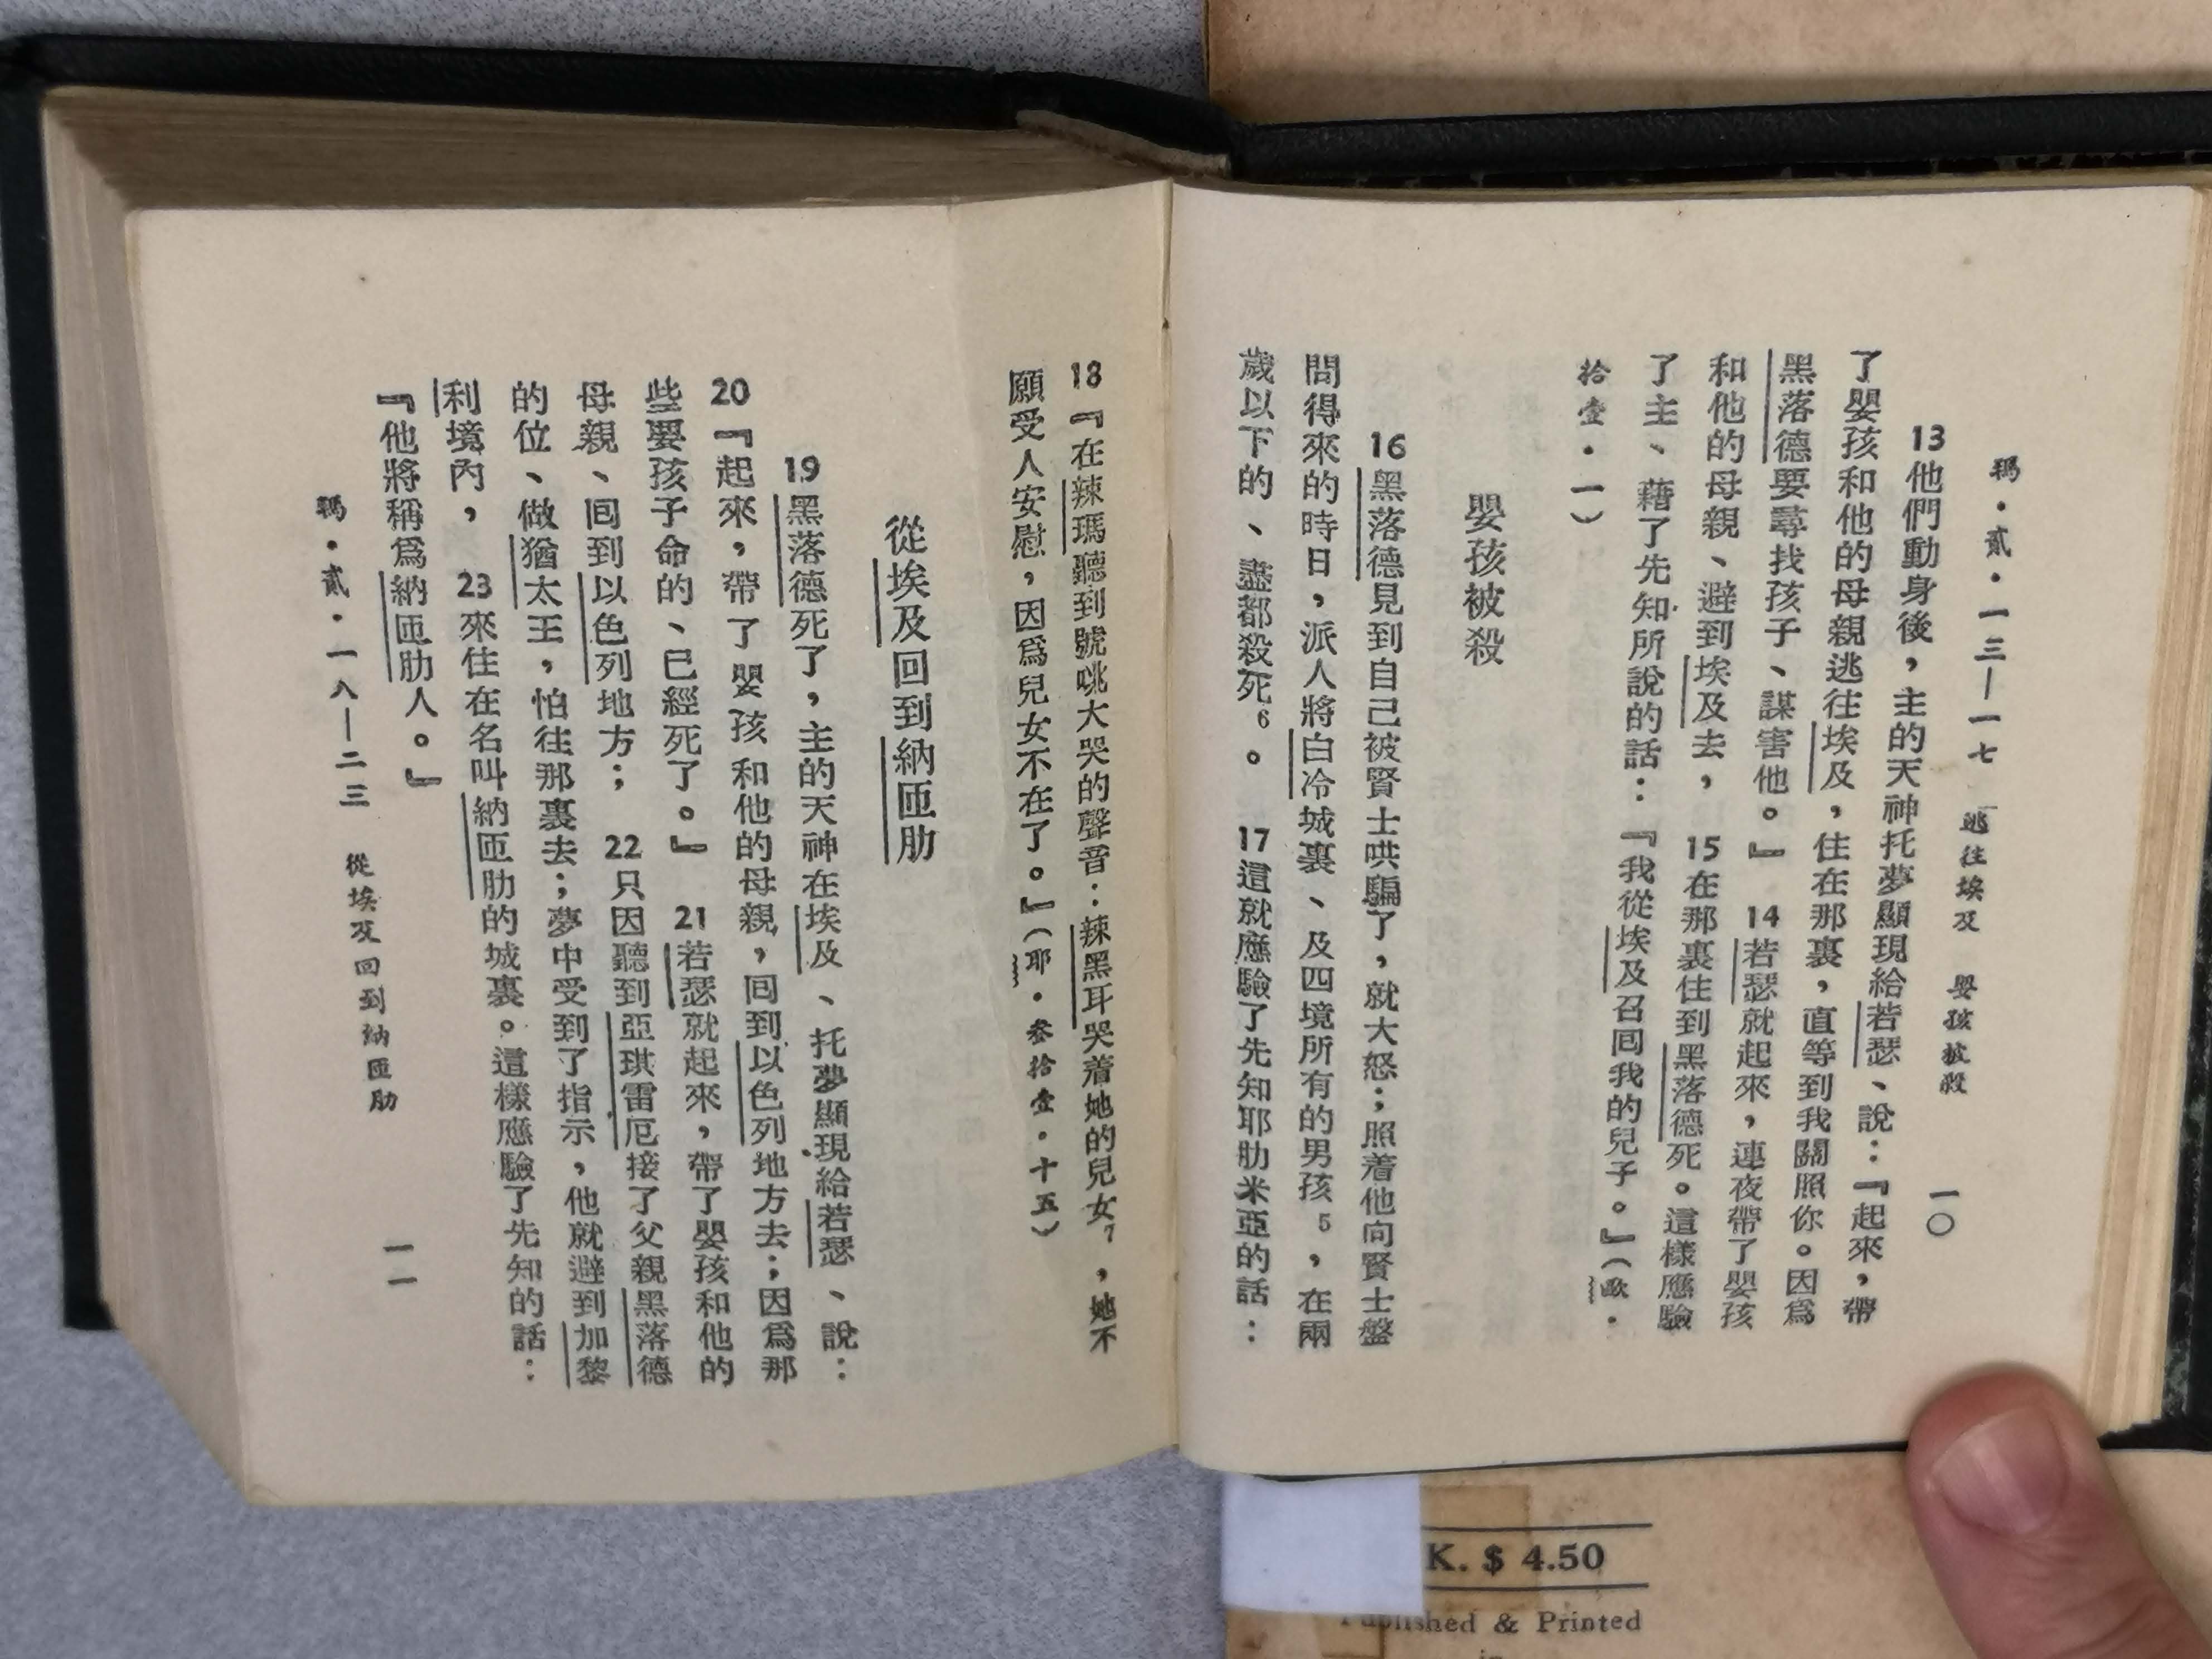 瑪．貳．一三—一七　逃往埃及　嬰孩被殺　一〇
13他們動身後，主的天神托夢顯現給若瑟、說：『起來，帶
了嬰孩和他的母親逃往埃及，住在那裏，直等到我關照你。因爲
黑落德要尋找孩子、謀害他。』　14若瑟就起來，連夜帶了嬰孩
和他的母親、避到埃及去，　15在那裏住到黑落德死。這樣應驗
了主、藉了先知所說的話：『我從埃及召囘我的兒子。』（歐．
拾壹．一）
嬰孩被殺
16黑落德見到自己被賢士哄騙了，就大怒；照着他向賢士盤
問得來的時日，派人將白冷城裏、及四境所有的男孩5，在兩
歲以下的、盡都殺死6。　17這就應驗了先知耶肋米亞的話：
18『在辣瑪聽到號咷大哭的聲音：辣黑耳哭着她的兒女7，她不
願受人安慰，因爲兒女不在了。』（耶．叁拾壹．十五）
從埃及回到納匝肋
19黑落德死了，主的天神在埃及、托夢顯現給若瑟、說：
20『起來，帶了嬰孩和他的母親，囘到以色列地方去；因爲那
些要孩子命的、已經死了。』　21若瑟就起來，帶了嬰孩和他的
母親、囘到以色列地方；　22只因聽到亞琪雷厄接了父親黑落德
的位、做猶太王，怕往那裏去；夢中受到了指示，他就避到加黎
利境內，　23來住在名叫納匝肋的城裏。這樣應驗了先知的話：
『他將稱爲納匝肋人。』
瑪．貳．一八—二三　從埃及回到納匝肋　一一
K. $ 4.50
Published & Printed
in